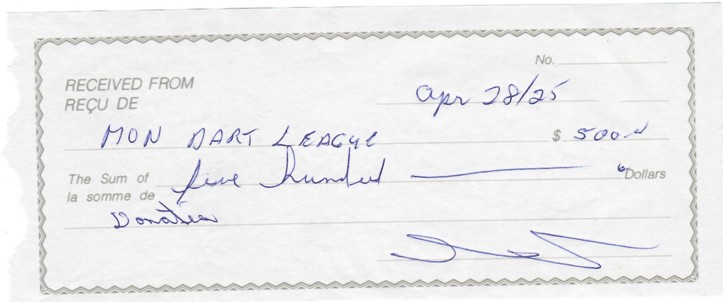 No.
RECEIVED FROM
REÇU DE
Apr 28/25
MON DART LEAGUE $ 500.00
The Sum of five hundred Dollars
la somme de
Donation